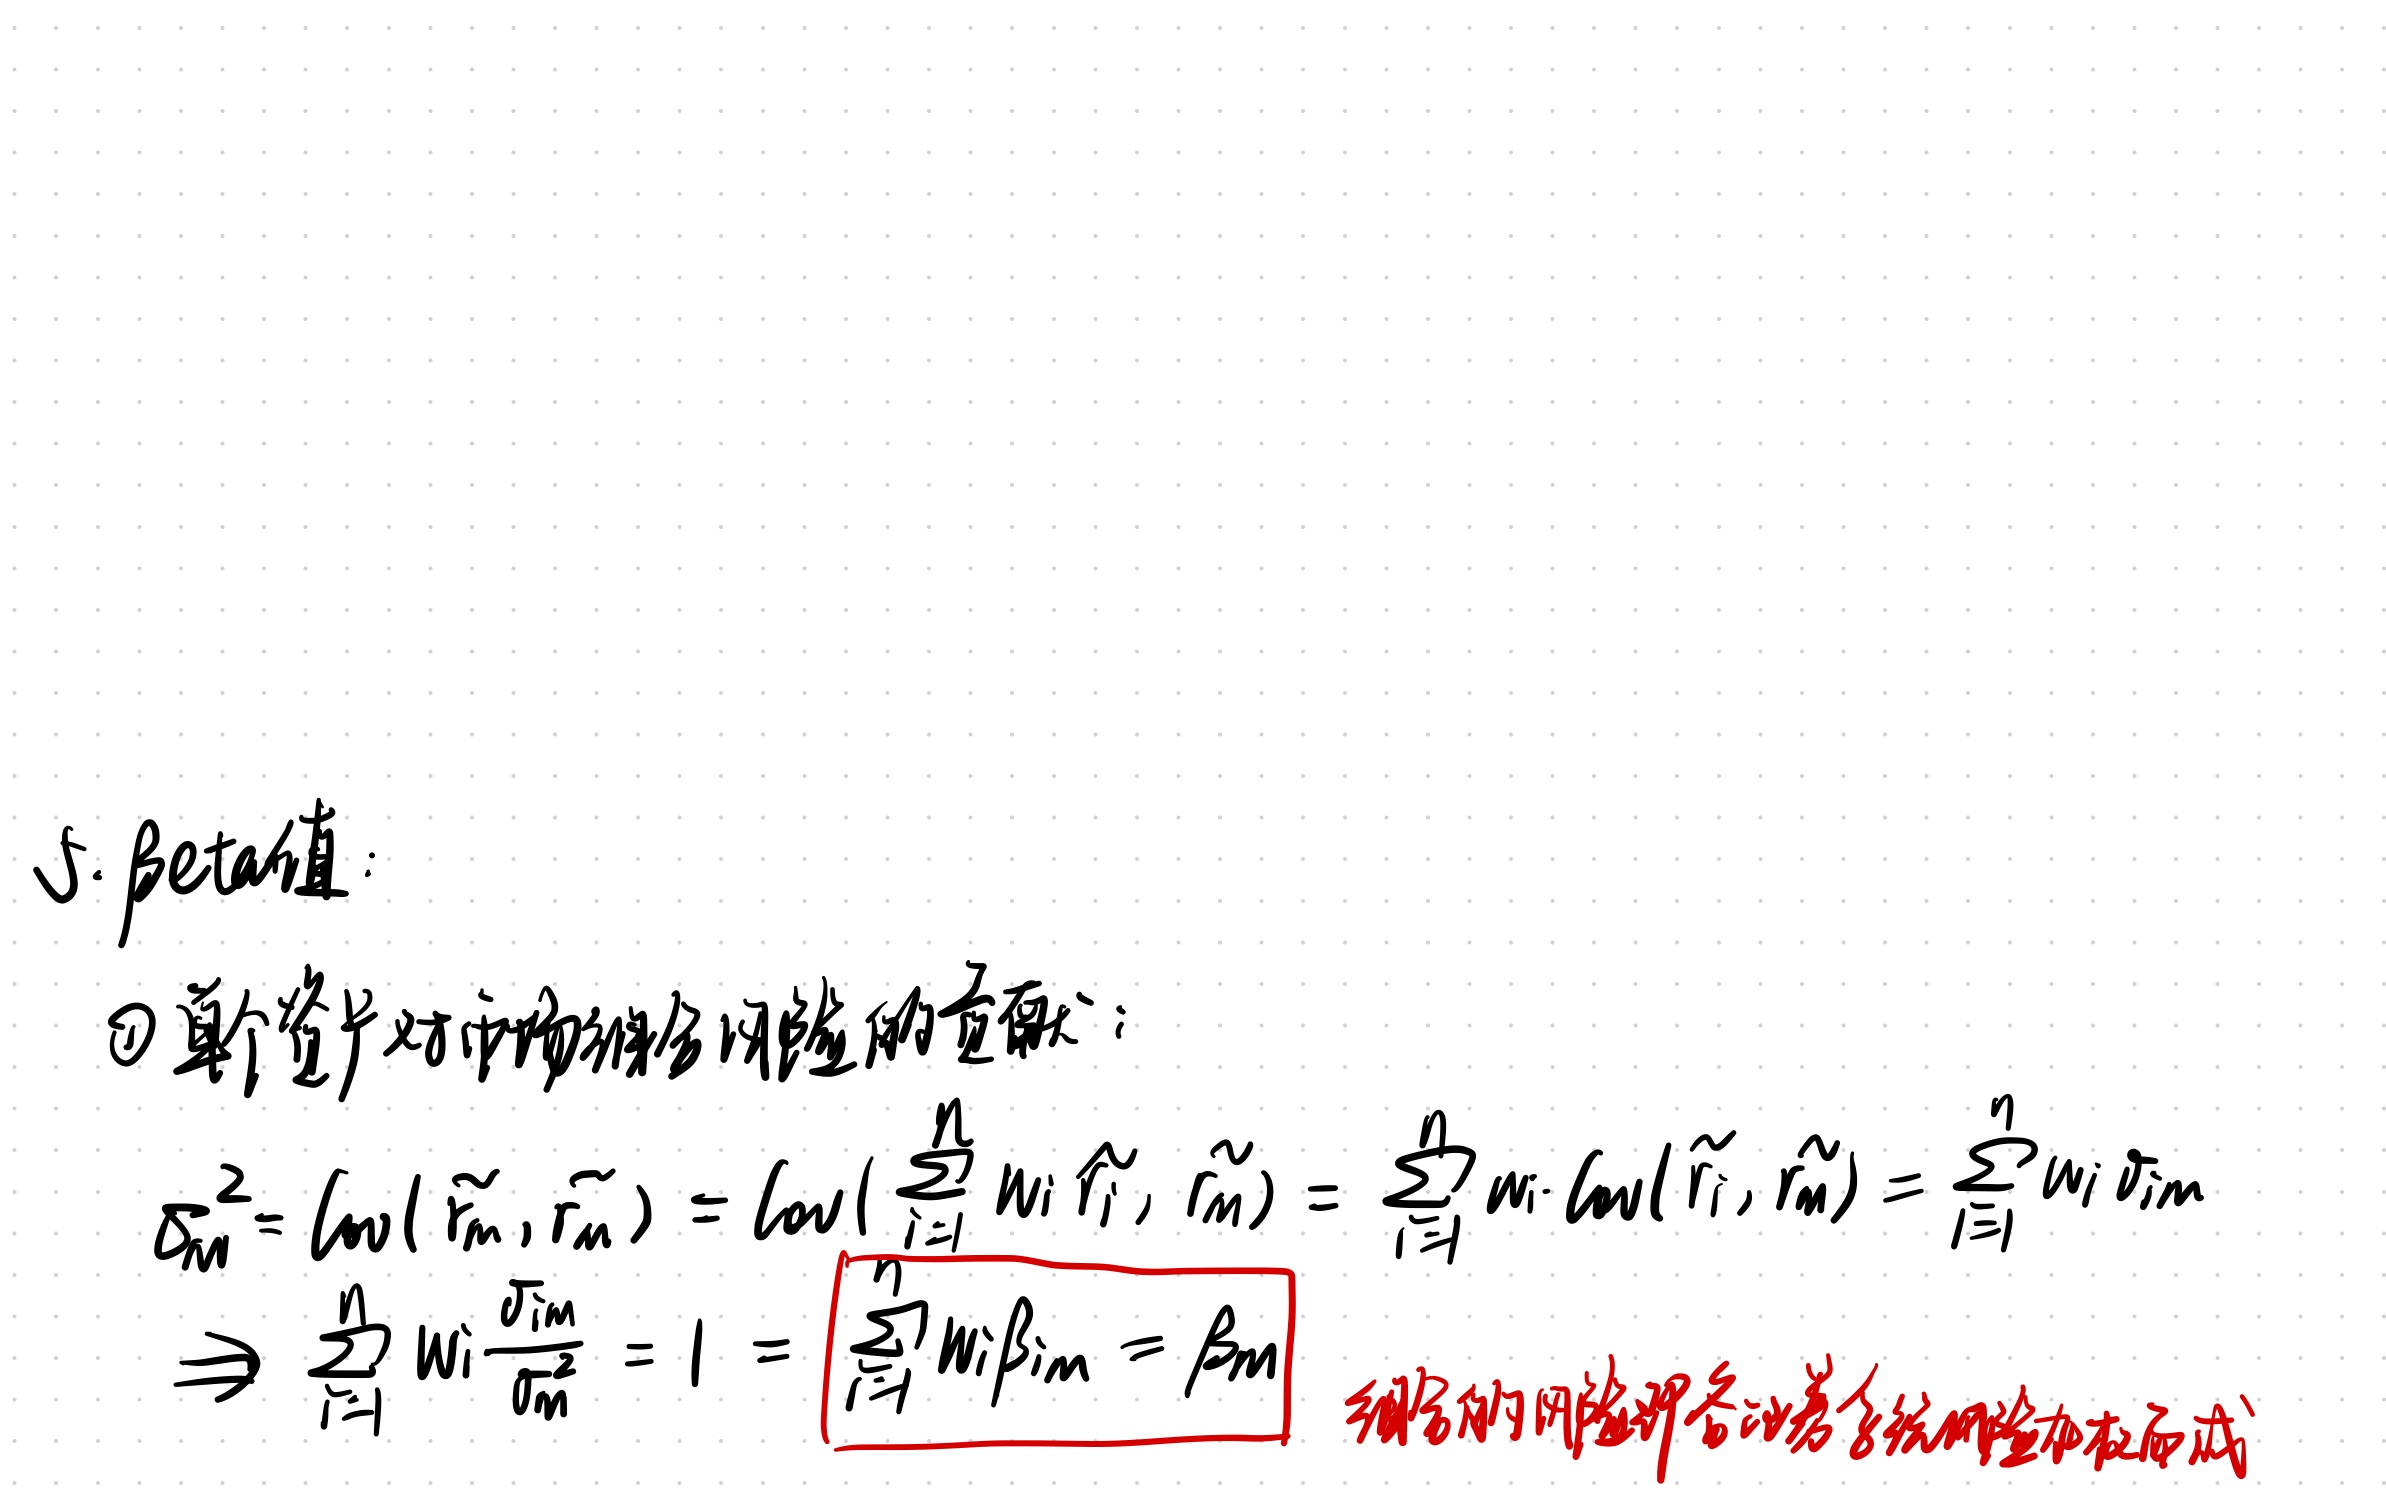 5. βeta值:
① 单个资产对市场组合风险的贡献:
σ_m² = Cov(r̃_m, r̃_m) = Cov(∑_{i=1}^{n} w_i r̃_i, r̃_m) = ∑_{i=1}^{n} w_i Cov(r̃_i, r̃_m) = ∑_{i=1}^{n} w_i σ_{im}
⇒ ∑_{i=1}^{n} w_i σ_{im}/σ_m² = 1 = ∑_{i=1}^{n} w_i β_{im} = β_m